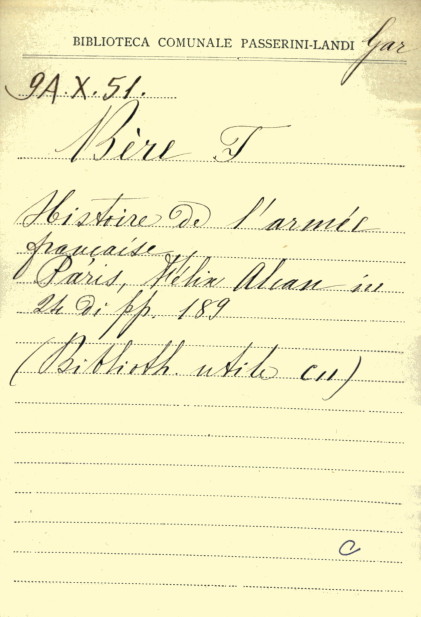 BIBLIOTECA COMUNALE PASSERINI-LANDI Gar
9A.X.51.
Bère F
Histoire de l'armée
française
Paris, Félix Alcan in
24 di pp. 189
(Biblioth. utile CII)
C